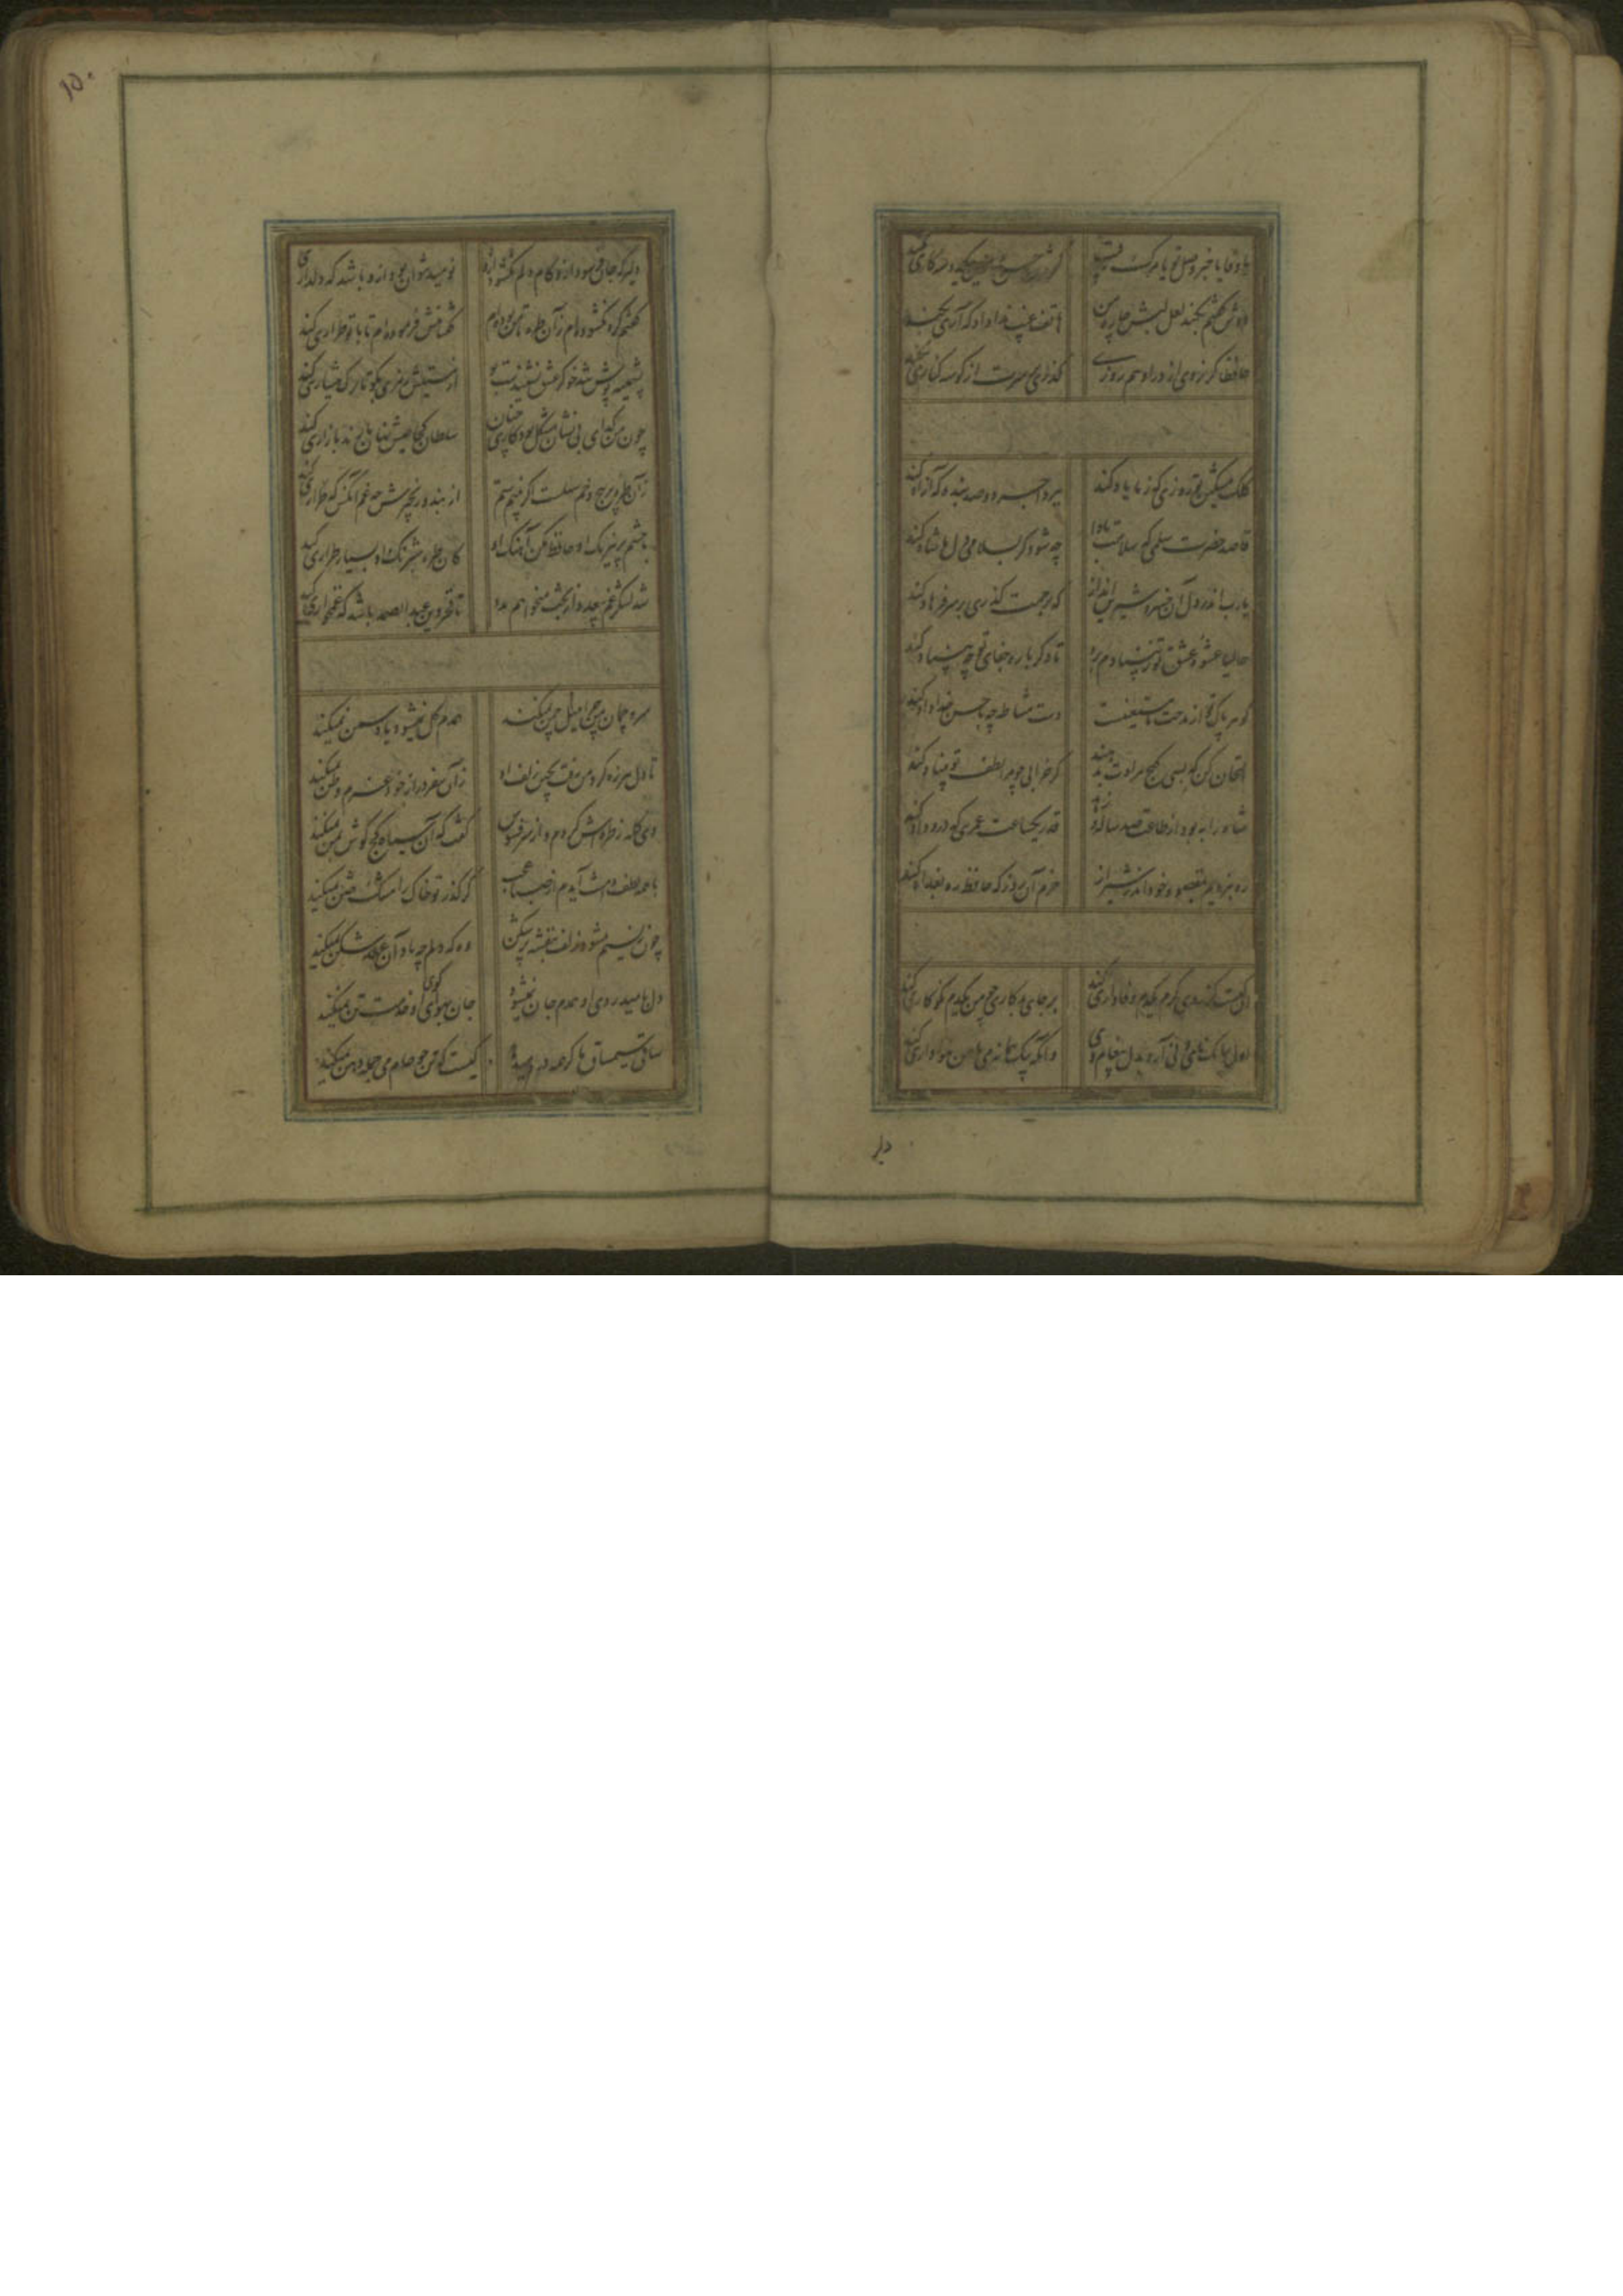 یا وفا یا خبر وصل تو یا مرگ رقیب
دوش گفتم بکند لعل لبش چاره من
هاتف غیب ندا داد که آری بکند
حافظا گر نروی از در او هم روزی
گذری بر سرت از گوشه کناری بکند
کلک مشکین تو روزی که ز ما یاد کند
ببرد اجر دو صد بنده که آزاد کند
قاصد حضرت سلمی که سلامت بادا
چه شود گر بسلامی دل ما شاد کند
یا رب اندر دل آن خسرو شیرین انداز
که برحمت گذری بر سر فرهاد کند
حالیا عشوه عشق تو ز بنیادم برد
تا دگر باره جفای تو چه بنیاد کند
گوهر پاک تو از مدحت ما مستغنیست
دست مشاطه چه با حسن خداداد کند
امتحان کن که بسی گنج مرادت بدهند
گر خرابی چو مرا لطف تو آباد کند
شاه را به بود از طاعت صد ساله و زهد
قدر یکساعت عمری که درو داد کند
ره نبردیم بمقصود خود اندر شیراز
خرم آن روز که حافظ ره بغداد کند
آن کیست کز روی کرم بکدم وفاداری کند
بر جای بدکاری چو من یکدم نکو کاری کند
اول ببانک نای و نی آرد بدل پیغام وی
وانگه بیک پیمانه می با من هواداری کند
دلبر
۱۵۰
دلبر که جان فرسود ازو کام دلم نگشود ازو
نومید نتوان بود ازو باشد که دلداری کند
گفتم گره نگشوده‌ام زآن طره تا من بوده‌ام
گفتا منش فرموده‌ام تا با تو طراری کند
پشمینه پوش تند خو کز عشق نشنیدست بو
از مستیش رمزی بگو تا ترک هشیاری کند
چون من گدای بی نشان مشکل بود یاری چنان
سلطان کجا عیش نهان با رند بازاری کند
زآن طره پر پیچ و خم سهلست اگر بینم ستم
از بند و زنجیرش چه غم آنکس که طراری کند
با چشم پر نیرنک او حافظ مکن آهنک او
کان طره شبرنک او بسیار طراری کند
شد لشکر غم بی عدد از بخت میخواهم مدد
تا فخر دین عبدالصمد باشد که غمخواری کند
سرو چمان من چرا میل چمن نمیکند
همدم گل نمیشود یاد سمن نمیکند
تا دل هرزه گرد من رفت بچین زلف او
زآن سفر دراز خود عزم وطن نمیکند
دی گله ز طره‌اش کردم و از سر فسوس
گفت که آن سیاه کج گوش بمن نمیکند
با همه عطف دامنت آیدم از صبا عجب
کز گذر تو خاک را مشک ختن نمیکند
چون ز نسیم میشود زلف بنفشه پر شکن
وه که دلم چه یاد آن عهد شکن نمیکند
دل بامید روی او همدم جان نمیشود
جان بهوای کوی او خدمت تن نمیکند
ساقی سیم ساق ما گر همه درد میدهد
کیست که تن چو جام می جمله دهن نمیکند